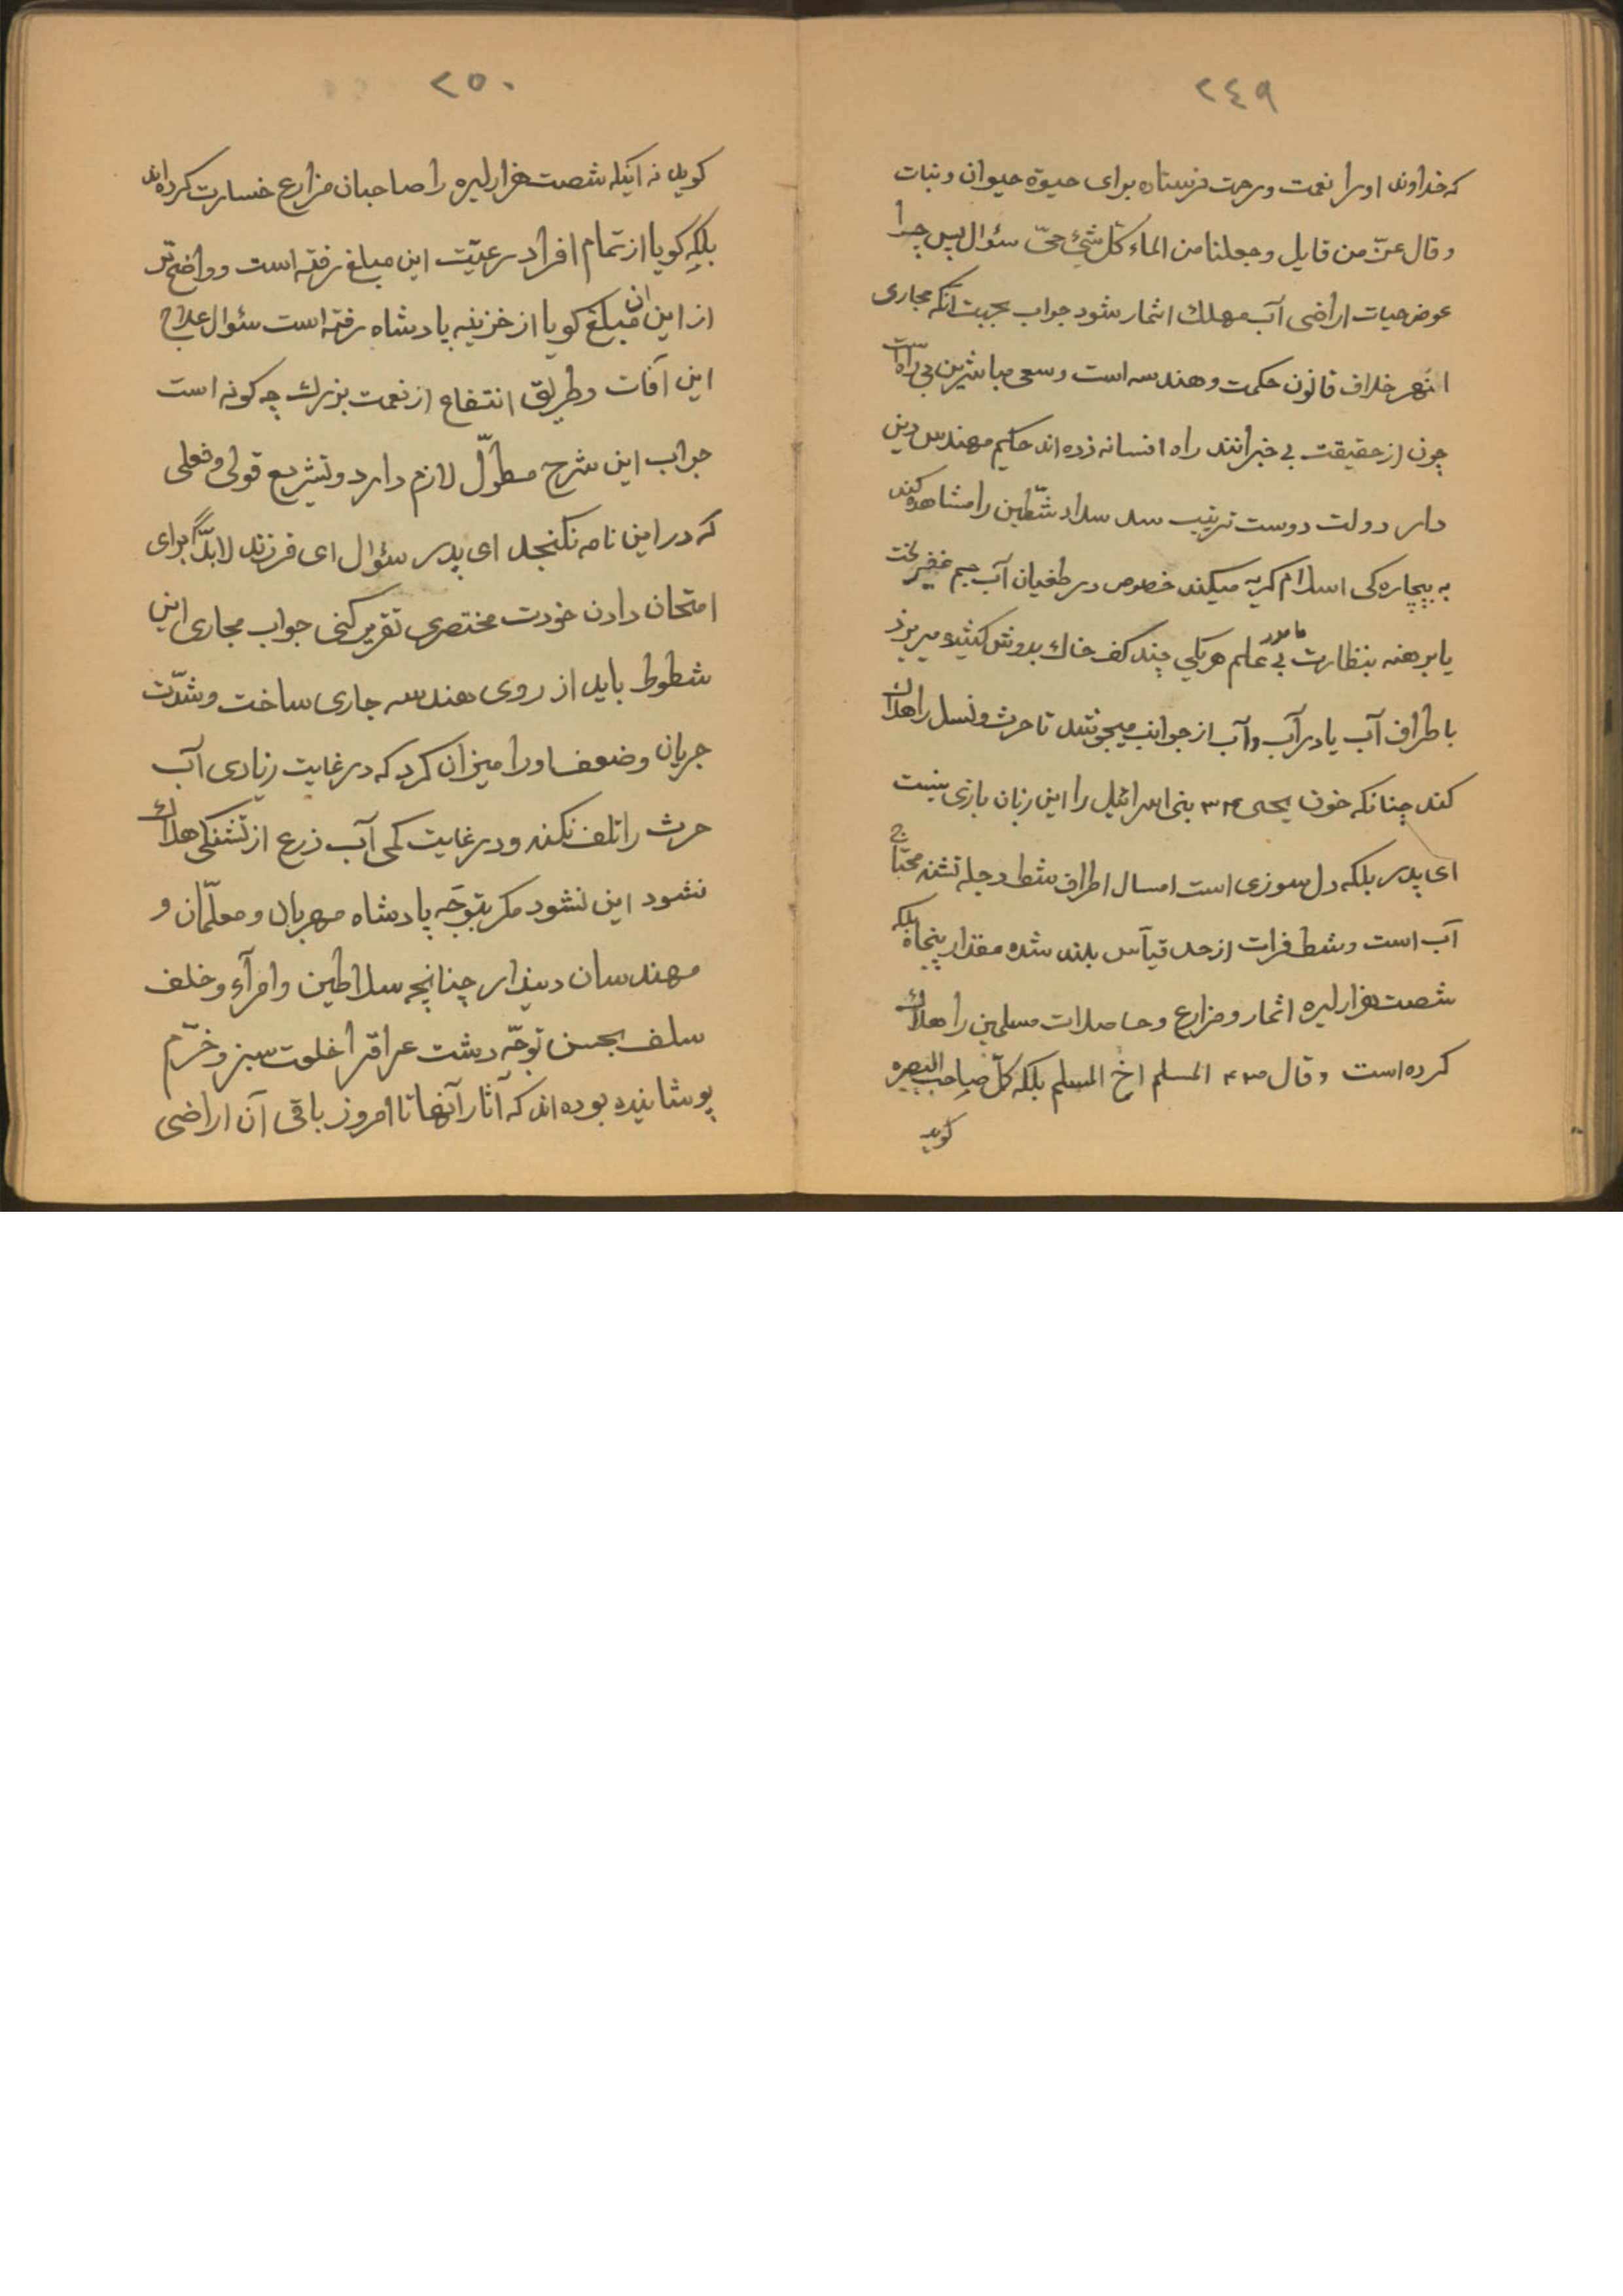 ٢٤٩
که خداوند اورا نعمت ورحمت فرستاده برای حیوة حیوان ونبات
وقال عزّ من قایل وجعلنا من الماء کلّ شئ حیّ سئوال پس چرا
عوض حیات اراضی آب مهلك اثمار شود جواب بجهت آنکه مجاری
انهر خلاف قانون حکمت وهندسه است وسعی مباشرین بی راه است
چون از حقیقت بی خبرانند راه افسانه زده اند حکیم مهندس دین
دار دولت دوست ترتیب سد سداد شطّین را مشاهده کند
به بیچاره کی اسلام کریه میکند خصوص در طغیان آب جم غفیر لخت
پا برهنه بنظارت مامور بی علم هریکی چند کف خاك بدوش کشیده میریزد
باطراف آب یا در آب وآب از جوانب میجوشد تا حرث ونسل را هلاك
کند چنانکه خون یحیی بنی اسرائیل را این زبان بازی نیست
ای پدر بلکه دل سوزی است امسال اطراف شط دجله تشنه محتاج
آب است وشط فرات از حد قیاس بلند شده مقدار پنجاه بلکه
شصت هزار لیره اثمار ومزارع وحاصلات مسلمین را هلاك
کرده است وقال المسلم اخ المسلم بلکه کلّ صاحب البصره
کوید
٢٥٠
کوید نه اینکه شصت هزار لیره را صاحبان مزارع خسارت کرده اند
بلکه کویا از تمام افراد رعیّت این مبلغ رفته است وواضح تر
از این ان مبلغ کویا از خزینه پادشاه رفته است سئوال علاج
این آفات وطریق انتفاع از نعمت بزرك چه کونه است
جواب این شرح مطوّل لازم دارد وتشریع قولی وفعلی
که در این نامه نکنجد ای پدر سئوال ای فرزند لابدّ برای
امتحان دادن خودت مختصری تقریر کنی جواب مجاری این
شطوط باید از روی هندسه جاری ساخت وشدّت
جریان وضعف اورا میزان کرد که در غایت زیادی آب
حرث را تلف نکند ودر غایت کمی آب زرع از تشنکی هلاك
نشود این نشود مکر بتوجّه پادشاه مهربان ومعلّمان و
مهندسان دیندار چنانچه سلاطین وامرآء وخلف
سلف بحسن توجّه دشت عراقرا خلعت سبز وخرّم
پوشانیده بوده اند که آثار آنها تا امروز باقی آن اراضی